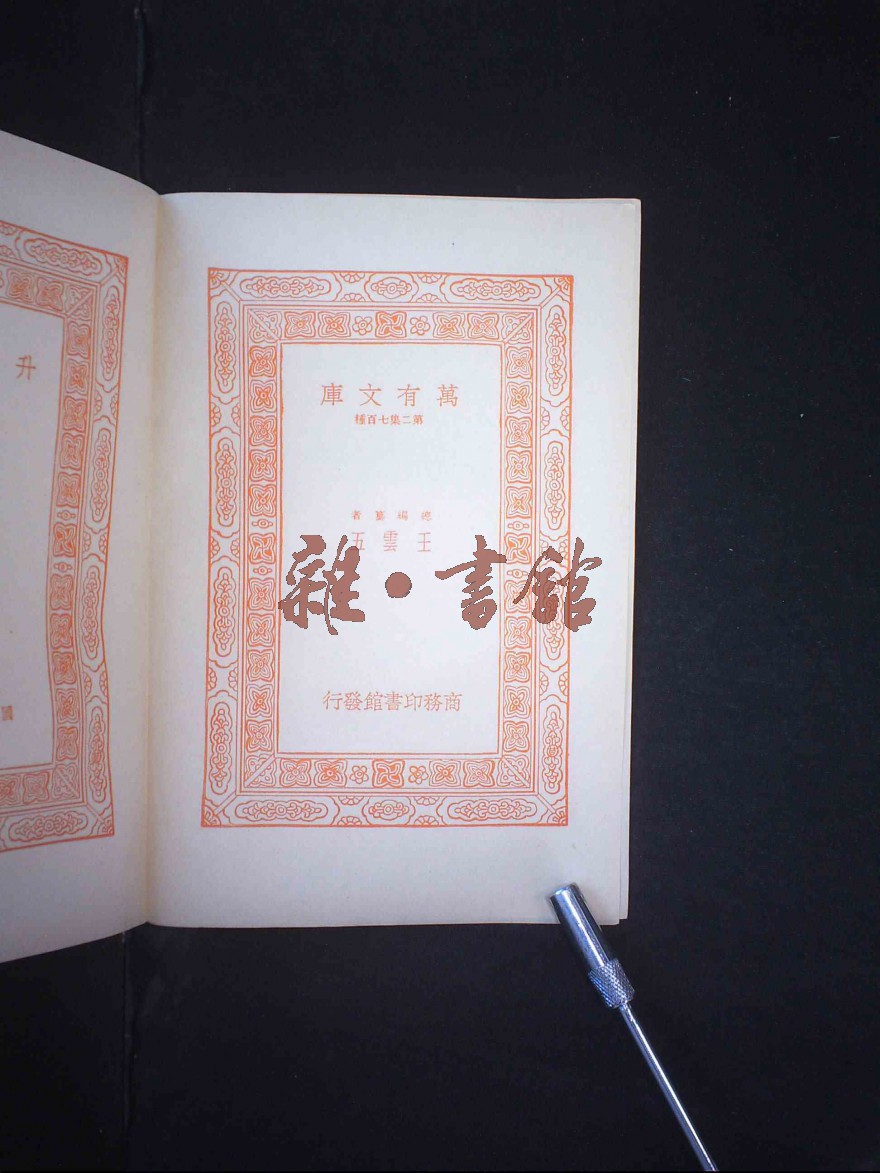 萬有文庫
第二集七百種
總編纂者
王雲五
雜·書館
商務印書館發行
升
國